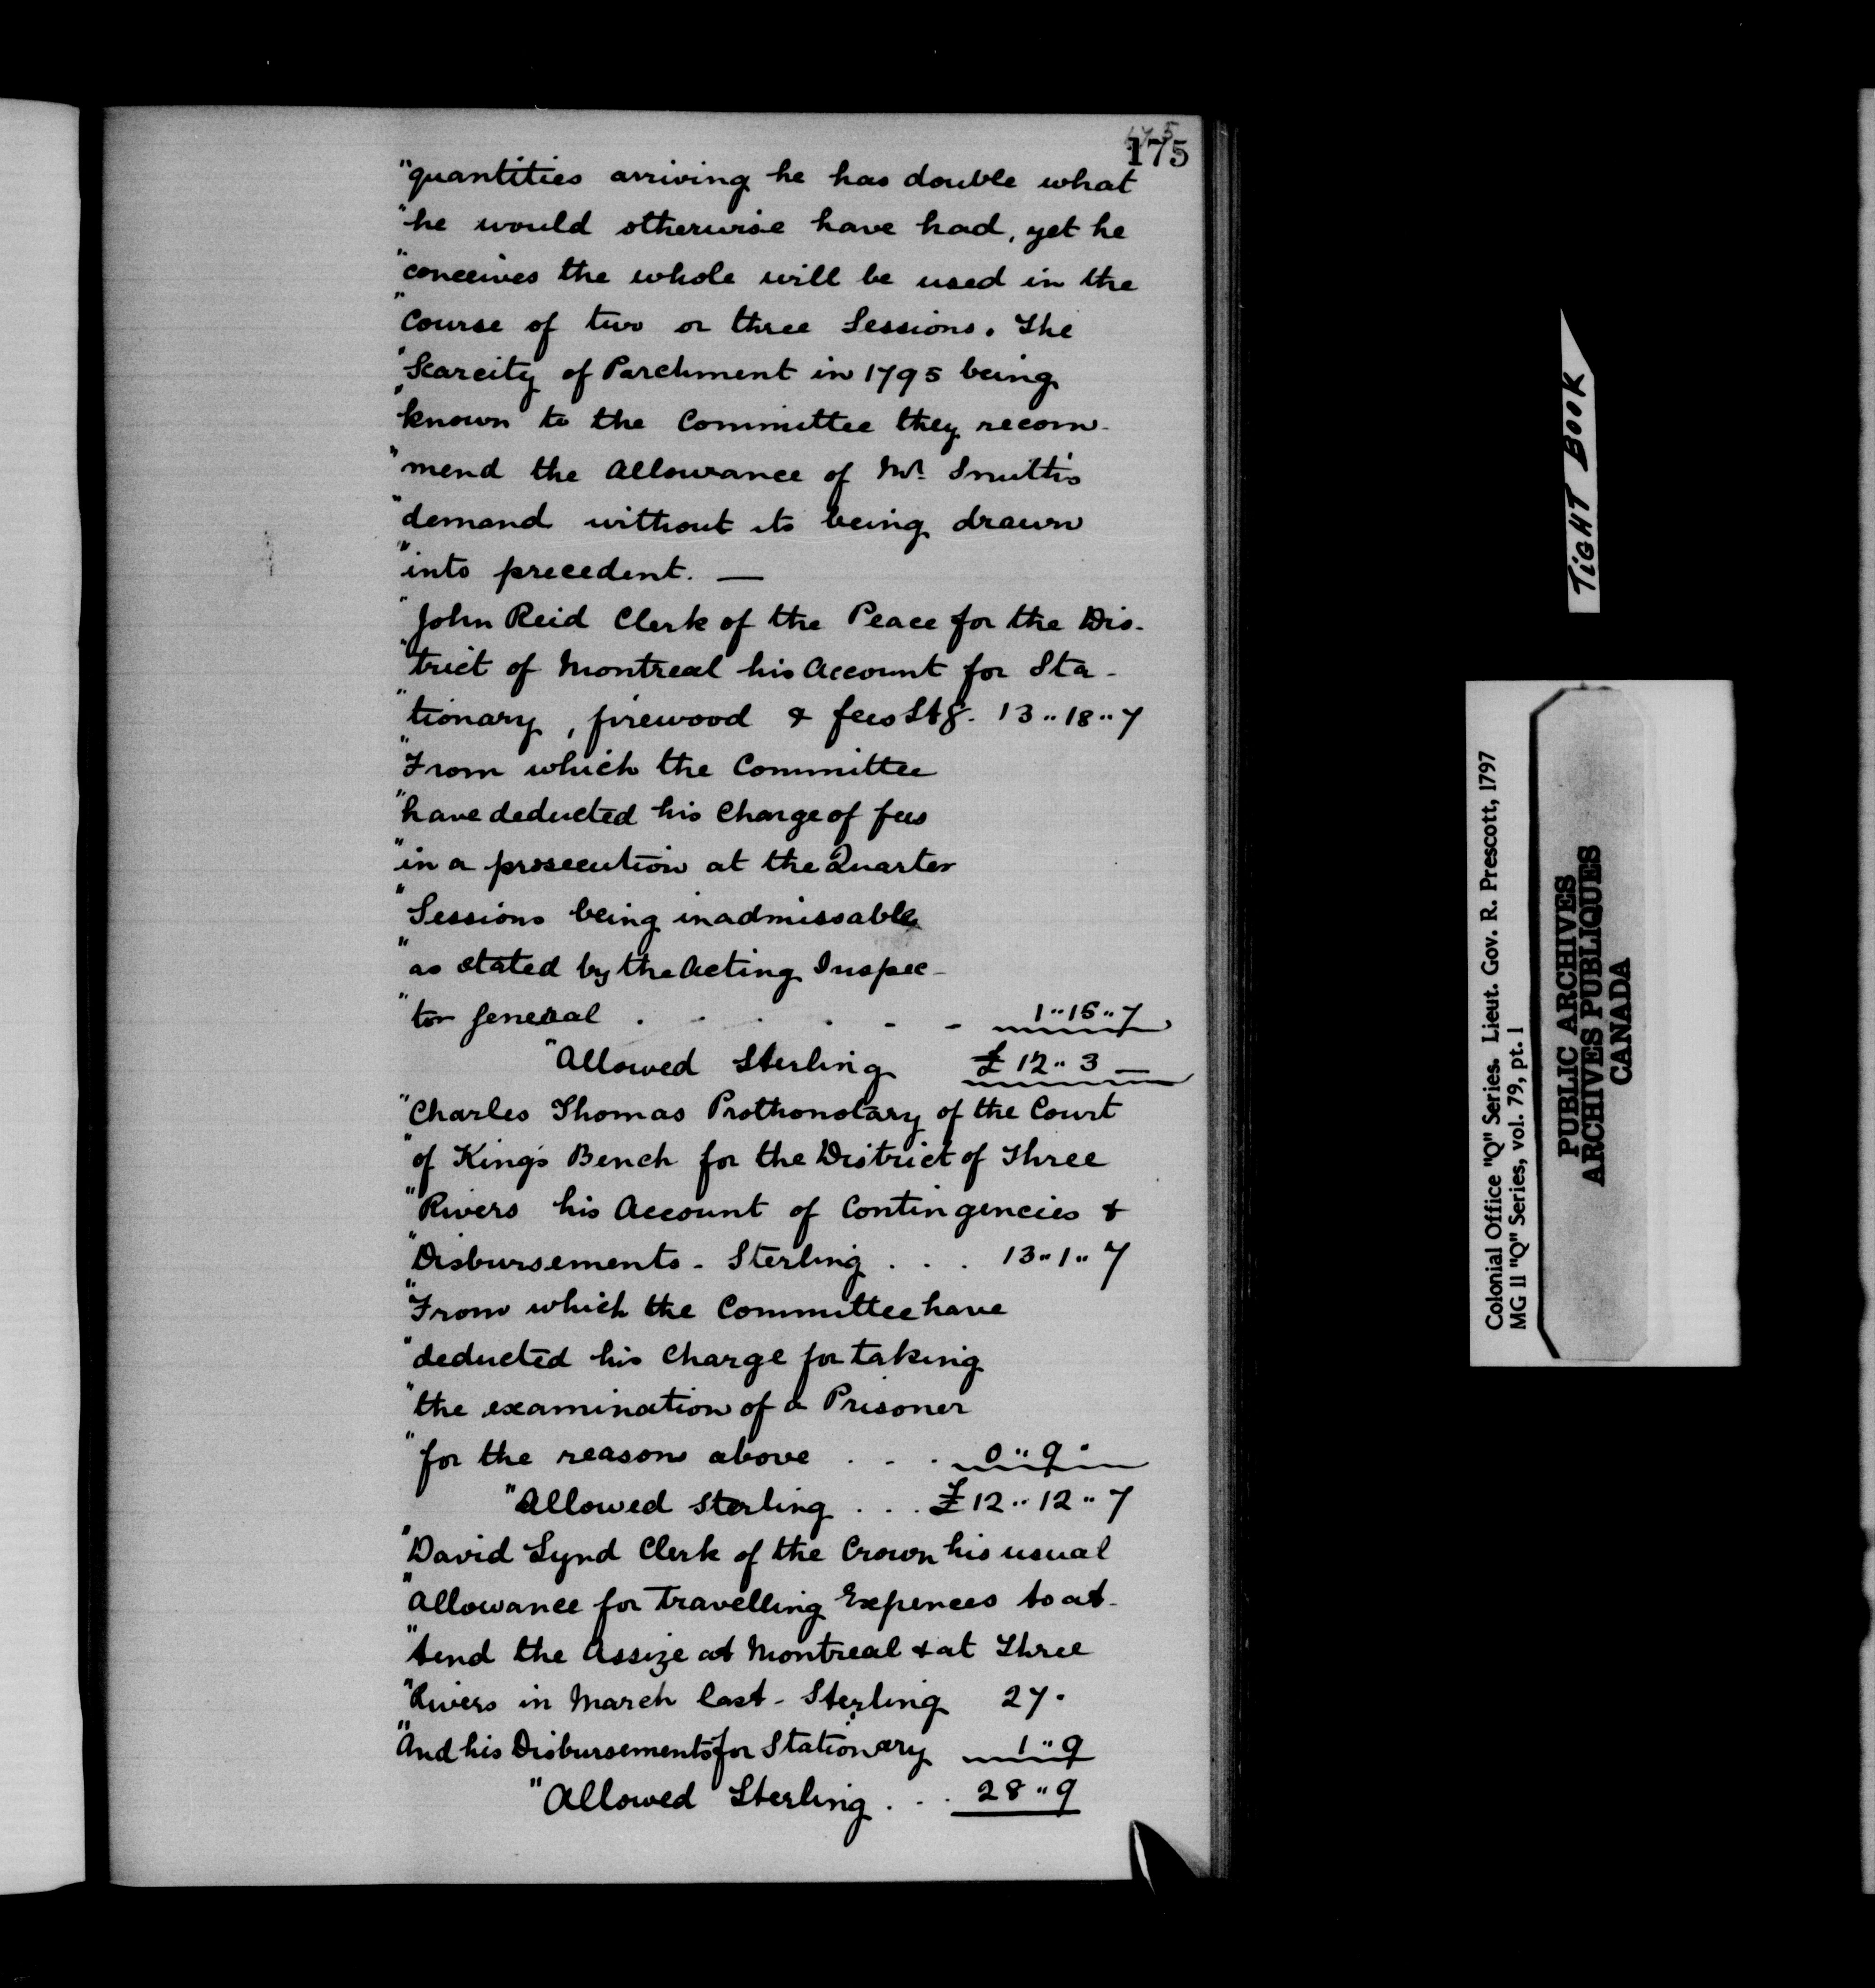 175
"quantities arriving he has double what
"he would otherwise have had, yet he
"conceives the whole will be used in the
"Course of two or three Sessions. The
"Scarcity of Parchment in 1795 being
"known to the Committee they recom-
"mend the allowance of Mr. Smith's
"demand without its being drawn
"into precedent. —
"John Reid Clerk of the Peace for the Dis-
"trict of Montreal his Account for Sta-
"tionary, firewood & fees Stg. 13..18..7
"From which the Committee
"have deducted his Charge of fees
"in a prosecution at the Quarter
"Sessions being inadmissable
"as stated by the Acting Inspec-
"tor General . - . . - - 1..15..7
"Allowed Sterling £12..3 —
"Charles Thomas Prothonotary of the Court
"of King's Bench for the District of Three
"Rivers his Account of Contingencies &
"Disbursements - Sterling . . . 13..1..7
"From which the Committee have
"deducted his Charge for taking
"the examination of a Prisoner
"for the reasons above . . . 0..9.
"Allowed Sterling . . . £12..12..7
"David Lynd Clerk of the Crown his usual
"allowance for Travelling Expences to at-
"tend the Assize at Montreal & at Three
"Rivers in March last - Sterling 27.
"And his Disbursements for Stationary 1..9
"Allowed Sterling . . . 28..9
TIGHT BOOK
Colonial Office "Q" Series. Lieut. Gov. R. Prescott, 1797
MG 11 "Q" Series, vol. 79, pt. 1
PUBLIC ARCHIVES
ARCHIVES PUBLIQUES
CANADA